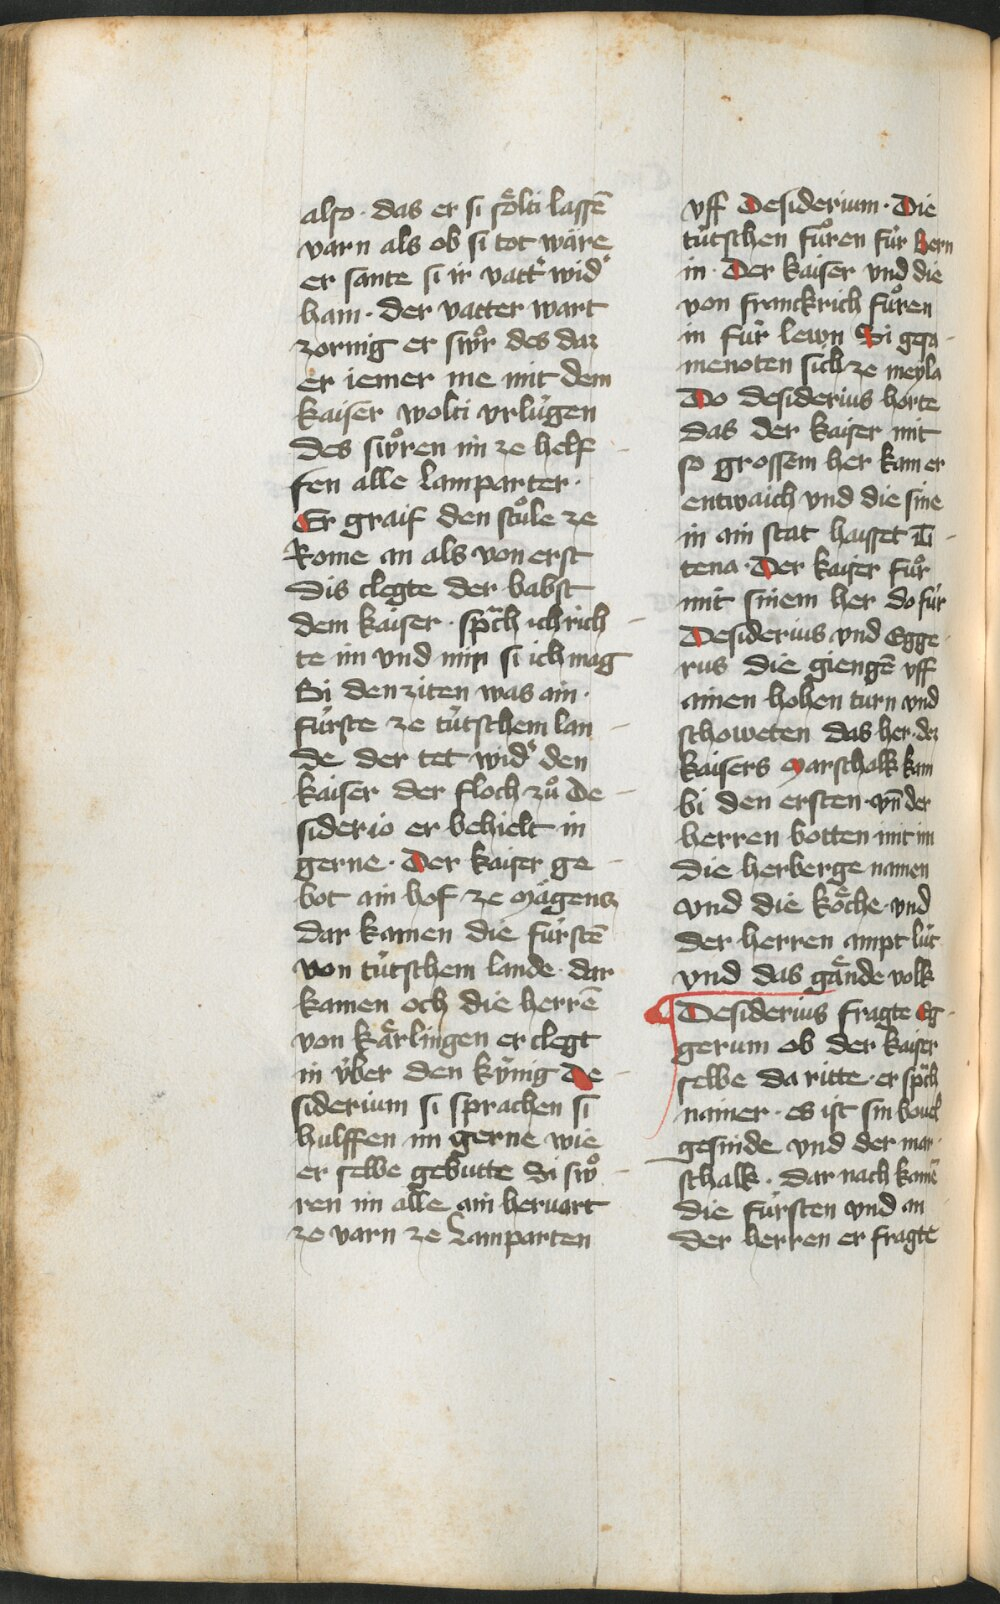 also · das er si soͤlti lassē
varn als ob si tot wäre
er sante si ir vattʾ widʾ
ham · der vatter wart
zornig er swͦr des daz
er iemer me mit dem
kaiser wolti vrlúgen
des swͦren im ze helf
fen alle Lamparter ·
Er graif den stuͦle ze
Rome an als von erst
Dis clegte der babst
dem kaiser · spͣch ich rich
te im vnd mir si ich mag
Bi den ziten was ain ·
fúrste ze tútschem lan
de der tet widʾ den
kaiser der floch zuͦ De
siderio er behielt in
gerne · Der kaiser ge
bot ain hof ze Mägenz
dar kamen die fúrstē
von tútschem lande · dar
kamen och die herrē
von kaͤrlingen er clegt
in v́ber den kýnig De
siderium si sprachen si
hulffen im gerne wie
er selbe gebutte Si swͦ
ren im alle ain hervart
ze varn ze Lamparten
vff Desiderium · Die
tútschen fuͦren fúr Bern
in · Der kaiser vnd die
von franckrich fuͦren
in fúr lewn Si gesa
menoten sich ze meyla
Do desiderius horte
das der kaiser mit
so grossem her kam er
entwaich vnd die sine
in ain stat haisset Ti
tena · Der kaiser fuͦr
mit sinem her do fúr
Desiderius vnd Egge
rus die giengē vff
ainen hohen turn vnd
schoweten das her · dez
kaisers Marschalk kam
bi den ersten · vn̄ der
herren botten mit im
die herberge namen
vnd die koͤche · vnd
der herren ampt lút
vnd das gaͤnde volk
Desiderius fragte Eg
gerum ob der kaiser
selbe da ritte · er spͣch
nainer · es ist sin bouel
gesinde vnd der mar
schalk · dar nach kamē
die fúrsten vnd an
der herren er fragte